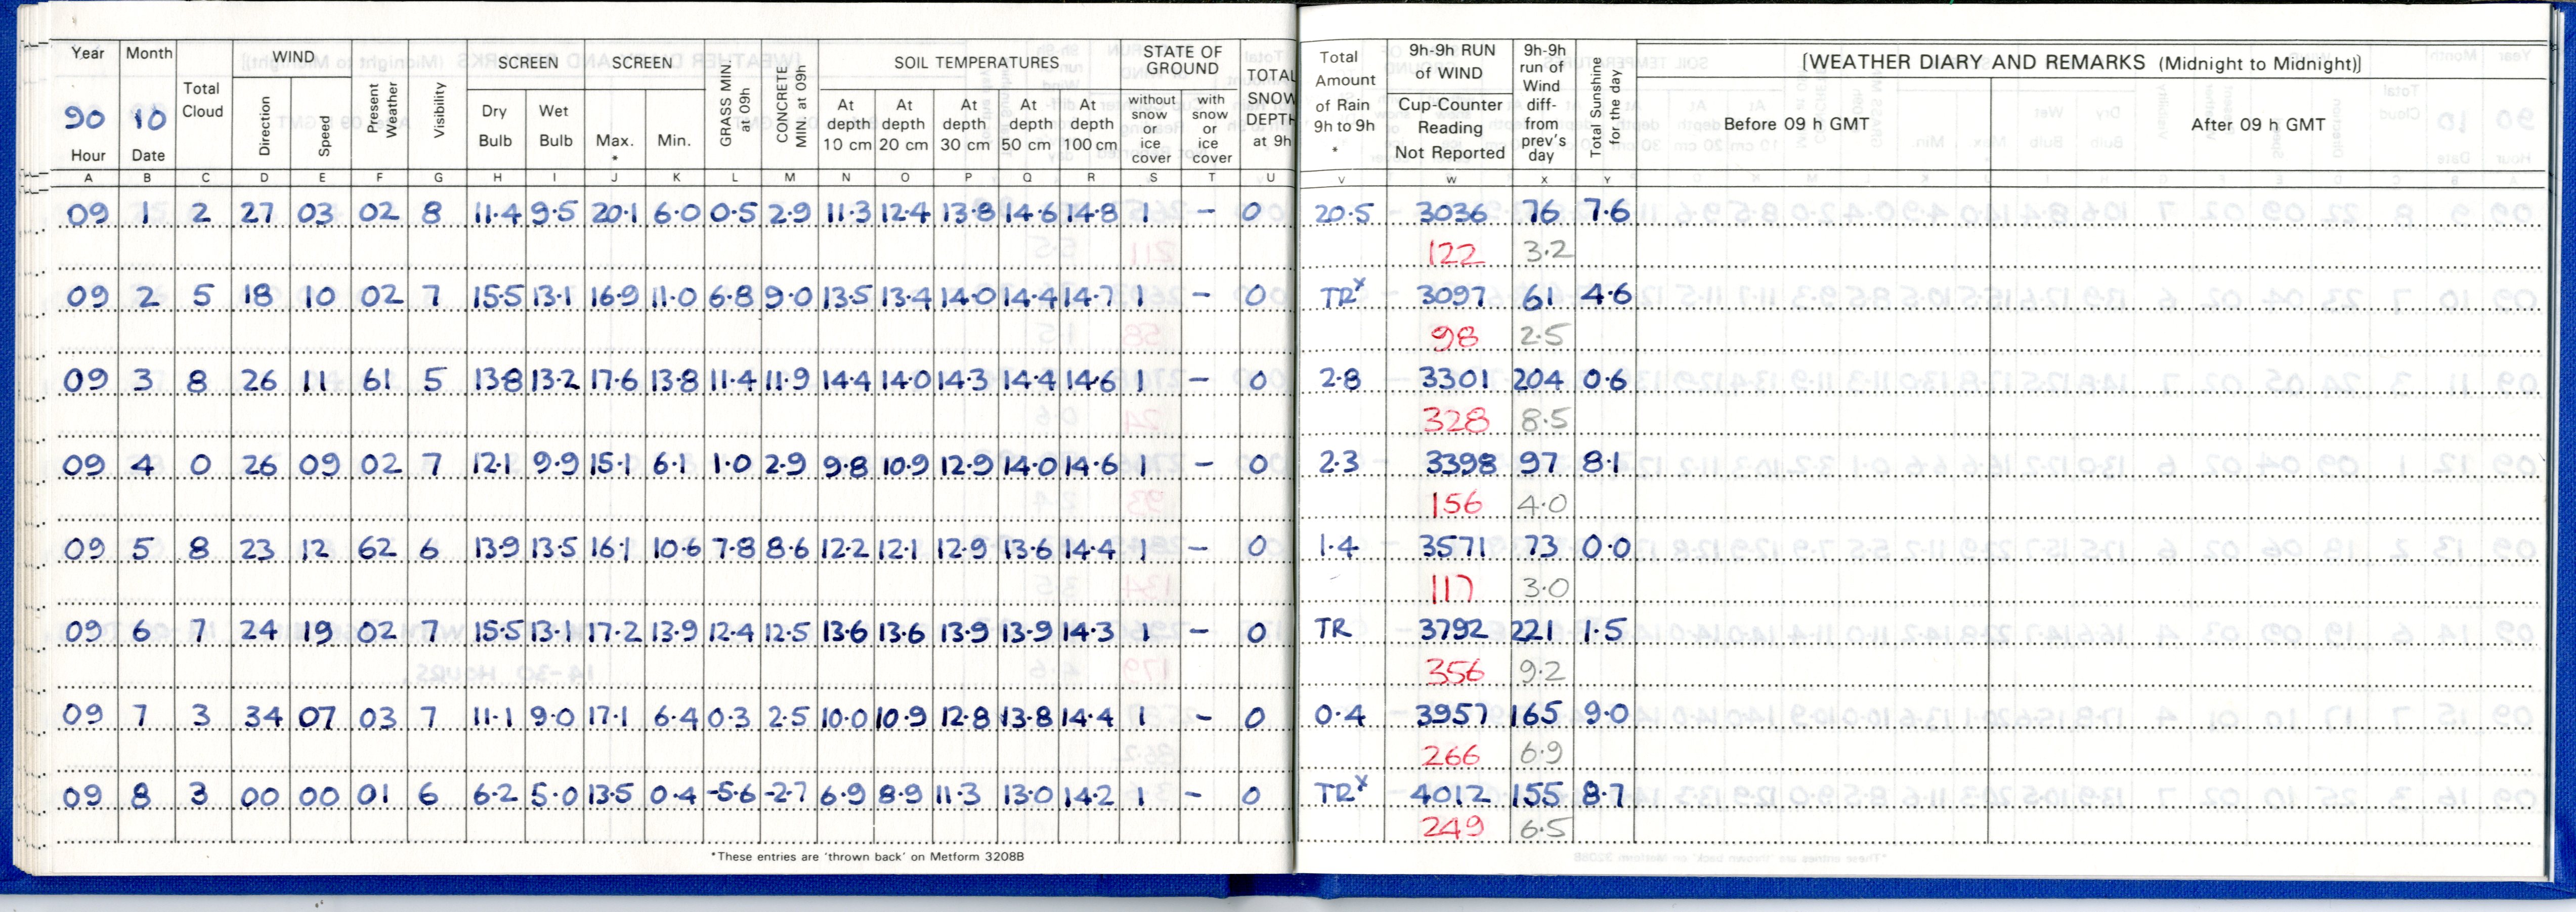 Year Month Total Cloud WIND Present Weather Visibility SCREEN SCREEN GRASS MIN. at 09h CONCRETE MIN at 09h SOIL TEMPERATURES STATE OF GROUND TOTAL SNOW DEPTH at 9h Total Amount of Rain 9h to 9h * 9h-9h RUN of WIND 9h-9h run of Wind diff- from prev's day Total Sunshine for the day [WEATHER DIARY AND REMARKS (Midnight to Midnight)]
90 10 Direction Speed Dry Bulb Wet Bulb Max. * Min. At depth 10 cm At depth 20 cm At depth 30 cm At depth 50 cm At depth 100 cm without snow or ice cover with snow or ice cover Cup-Counter Reading Not Reported Before 09 h GMT After 09 h GMT
Hour Date
A B C D E F G H I J K L M N O P Q R S T U V W X Y
09 1 2 27 03 02 8 11.4 9.5 20.1 6.0 0.5 2.9 11.3 12.4 13.8 14.6 14.8 1 – 0 20.5 3036 76 7.6
122 3.2
09 2 5 18 10 02 7 15.5 13.1 16.9 11.0 6.8 9.0 13.5 13.4 14.0 14.4 14.7 1 – 0 TRx 3097 61 4.6
98 2.5
09 3 8 26 11 61 5 13.8 13.2 17.6 13.8 11.4 11.9 14.4 14.0 14.3 14.4 14.6 1 – 0 2.8 3301 204 0.6
328 8.5
09 4 0 26 09 02 7 12.1 9.9 15.1 6.1 1.0 2.9 9.8 10.9 12.9 14.0 14.6 1 – 0 2.3 3398 97 8.1
156 4.0
09 5 8 23 12 62 6 13.9 13.5 16.1 10.6 7.8 8.6 12.2 12.1 12.9 13.6 14.4 1 – 0 1.4 3571 73 0.0
117 3.0
09 6 7 24 19 02 7 15.5 13.1 17.2 13.9 12.4 12.5 13.6 13.6 13.9 13.9 14.3 1 – 0 TR 3792 221 1.5
356 9.2
09 7 3 34 07 03 7 11.1 9.0 17.1 6.4 0.3 2.5 10.0 10.9 12.8 13.8 14.4 1 – 0 0.4 3957 165 9.0
266 6.9
09 8 3 00 00 01 6 6.2 5.0 13.5 0.4 -5.6 -2.7 6.9 8.9 11.3 13.0 14.2 1 – 0 TRx 4012 155 8.7
249 6.5
*These entries are 'thrown back' on Metform 3208B